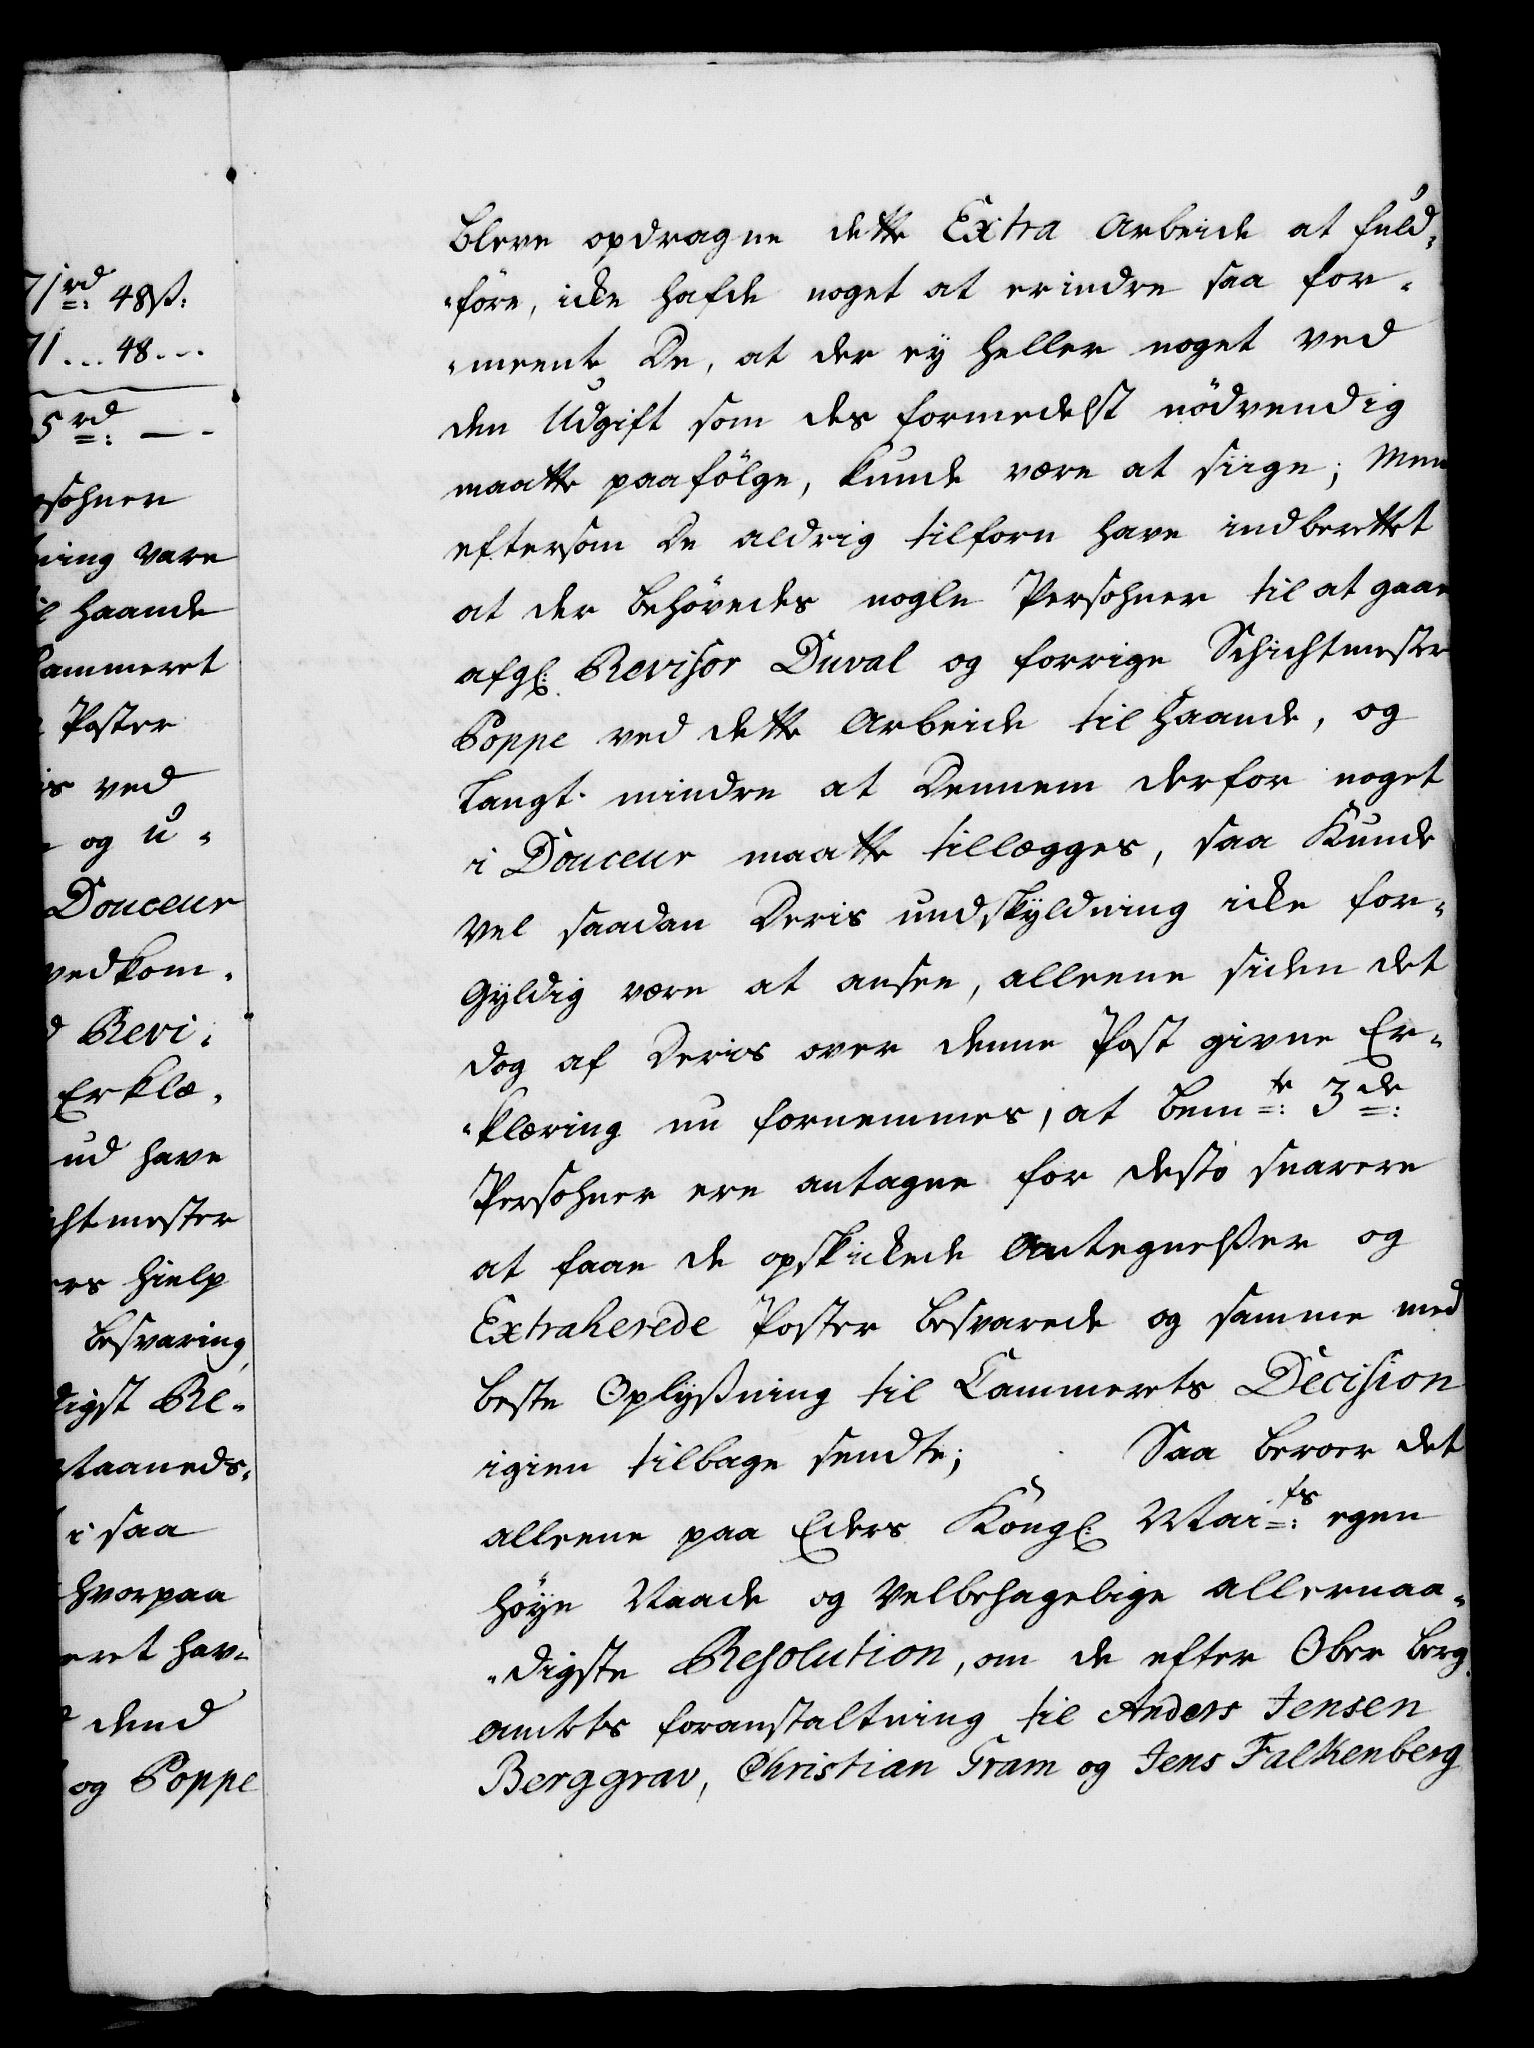 71rd 48ß:
71 ... 48 ...
5rd: — -
sohner
ning vare
il haande
Cammeret
Poster
is ved
og u-
Douceur
vedkom-
Revi-
Erklæ-
ud have
chtmester
ers hielp
besvaring
digst Re-
Maaneds-
i saa
hvorpaa
eret hav-
dend
og Poppe
bleve opdragne dette Extra Arbeide at fuld-
-føre, icke hafde noget at erindre saa for-
-meente De, at der ey heller noget ved
den Udgift som des formedelst nödvendig
maatte paafölge, kunde være at siige; Men
eftersom De aldrig tilforn have indberettet
at der behövedes nogle Persohner til at gaae
afgl: Revisor Duval og forrige Schichtmester
Poppe ved dette Arbeide til haande, og
langt mindre at Dennem derfor noget
i Douceur maatte tillægges, saa kunde
vel saadan Deris undskyldning icke for-
gyldig være at ansee, alleene siden det
dog af Deris over denne Post givne Er-
-klæring nu fornemmes, at bemte: 3de:
Persohner ere antagne for desto snarere
at faae de opskickede Antegnelßer og
Extraherede Poster besvarede og samme med
beste Oplysßning til Cammerets Decision
igien tilbage sendte; Saa beroer det
alleene paa Eders Kongl: Maits: egen
høye Naade og Velbehagelige allernaa-
-digste Resolution, om de efter Ober Berg
amtets foranstaltning til Anders Jensen
Berggrav, Christian Gram og Jens Falkenberg